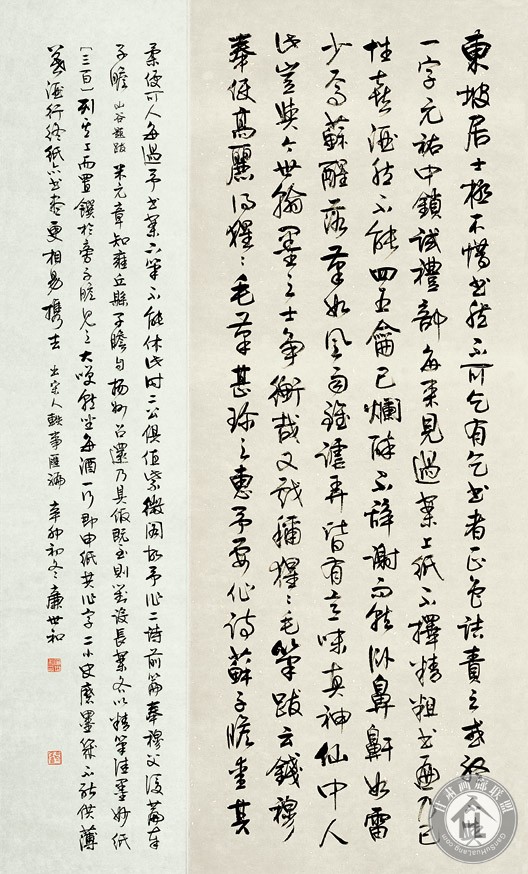 東坡居士極不惜書然不可乞有乞書者正色詰責之或終
一字元祐中鎖試禮部每來見過案上紙不擇精粗書遍乃已
性喜酒然不能四五龠已爛醉不辭謝而就卧鼻鼾如雷
少焉蘇醒落筆如風雨雖謔弄皆有意味真神仙中人
此豈與今世翰墨之士爭衡哉又猩猩毛筆跋云錢穆
奉使高麗得猩猩毛筆甚珍之惠予要作詩蘇子瞻愛其
柔便可人每過予書案下筆不能休此時二公俱值紫微閣故予作二詩前篇奉穆父後篇奉
子瞻 山谷題跋 米元章知雍丘縣子瞻自揚州召還乃具飯既至則對設長案各以精筆佳墨妙紙
[三百]列其上而置饌於旁子瞻見之大笑就坐每酒一行即申紙共作字二小史磨墨幾不能供薄
暮酒行終紙亦書盡更相易攜去 出宋人軼事匯編 辛卯初冬廉世和
甘肃画廊联盟
GanSuHuaLang.com